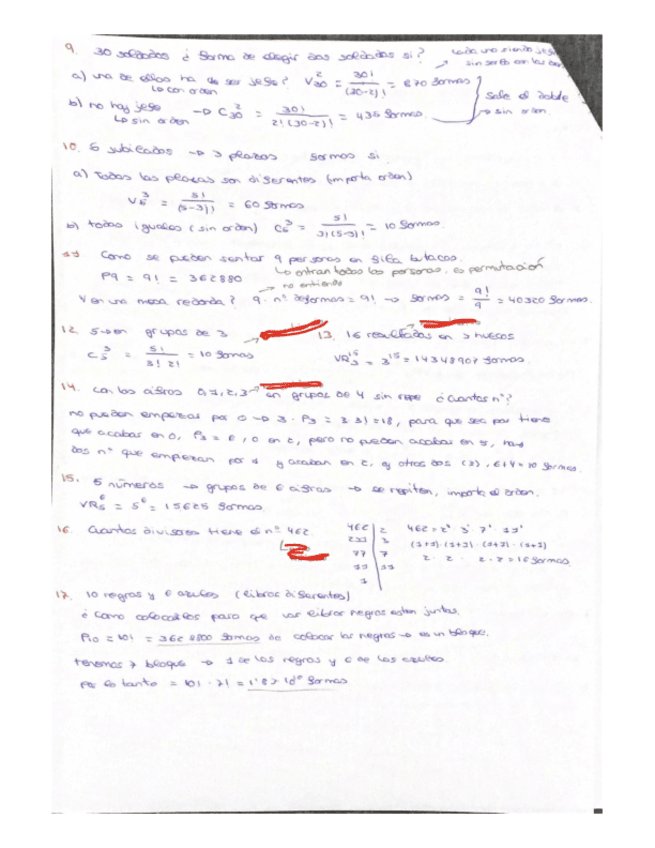 9. 30 soldados ¿ forma de elegir dos soldados si?
a) uno de ellos ha de ser jefe? V²₃₀ = 30! / (30-2)! = 870 formas
↳ con orden
Sale el doble
b) no hay jefe → C²₃₀ = 30! / 2!(30-2)! = 435 formas
↳ sin orden
→ sin orden
10. 5 jubilados → 3 plazas formas si
a) Todas las plazas son diferentes (importa orden)
V³₅ = 5! / (5-3)! = 60 formas
b) todas iguales (sin orden) C³₅ = 5! / 3!(5-3)! = 10 formas.
11 Como se pueden sentar 9 personas en fila butacas.
P9 = 9! = 362880
↳ entran todas las personas, es permutación
→ no entiendo
Y en una mesa redonda? 9 · nº de formas = 9! → formas = 9! / 9 = 40320 formas.
12. 5 → en grupos de 3
C³₅ = 5! / 3! 2! = 10 formas
13. 16 resultados en 3 huecos
VR¹⁵₃ = 3¹⁵ = 14348907 formas.
14. Con las cifras 0,1,2,3 en grupos de 4 sin repe ¿cuantos nº?
no pueden empezar por 0 → 3 · P₃ = 3 · 3! = 18, para que sea par tiene
que acabar en 0, P₃ = 6, o en 2, pero no pueden acabar en 5, hay
dos nº que empiezan por 1 y acaban en 2, y otros dos (3), 6+4 = 10 formas.
15. 5 números → grupos de 6 cifras → se repiten, importa el orden.
VR⁶₅ = 5⁶ = 15625 formas
16. Cuantos divisores tiene el nº 462
462 | 2
231 | 3
77 | 7
11 | 11
1
462 = 2¹ · 3¹ · 7¹ · 11¹
(1+1) · (1+1) · (1+1) · (1+1)
2 · 2 · 2 · 2 = 16 formas
17. 10 negros y 6 azules (libros diferentes)
¿ Como colocarlos para que los libros negros esten juntos.
P₁₀ = 10! = 3628800 formas de colocar los negros → es un bloque.
tenemos 7 bloque → 1 de los negros y 6 de los azules
Por lo tanto = 10! · 7! = 1'83 · 10¹⁰ formas